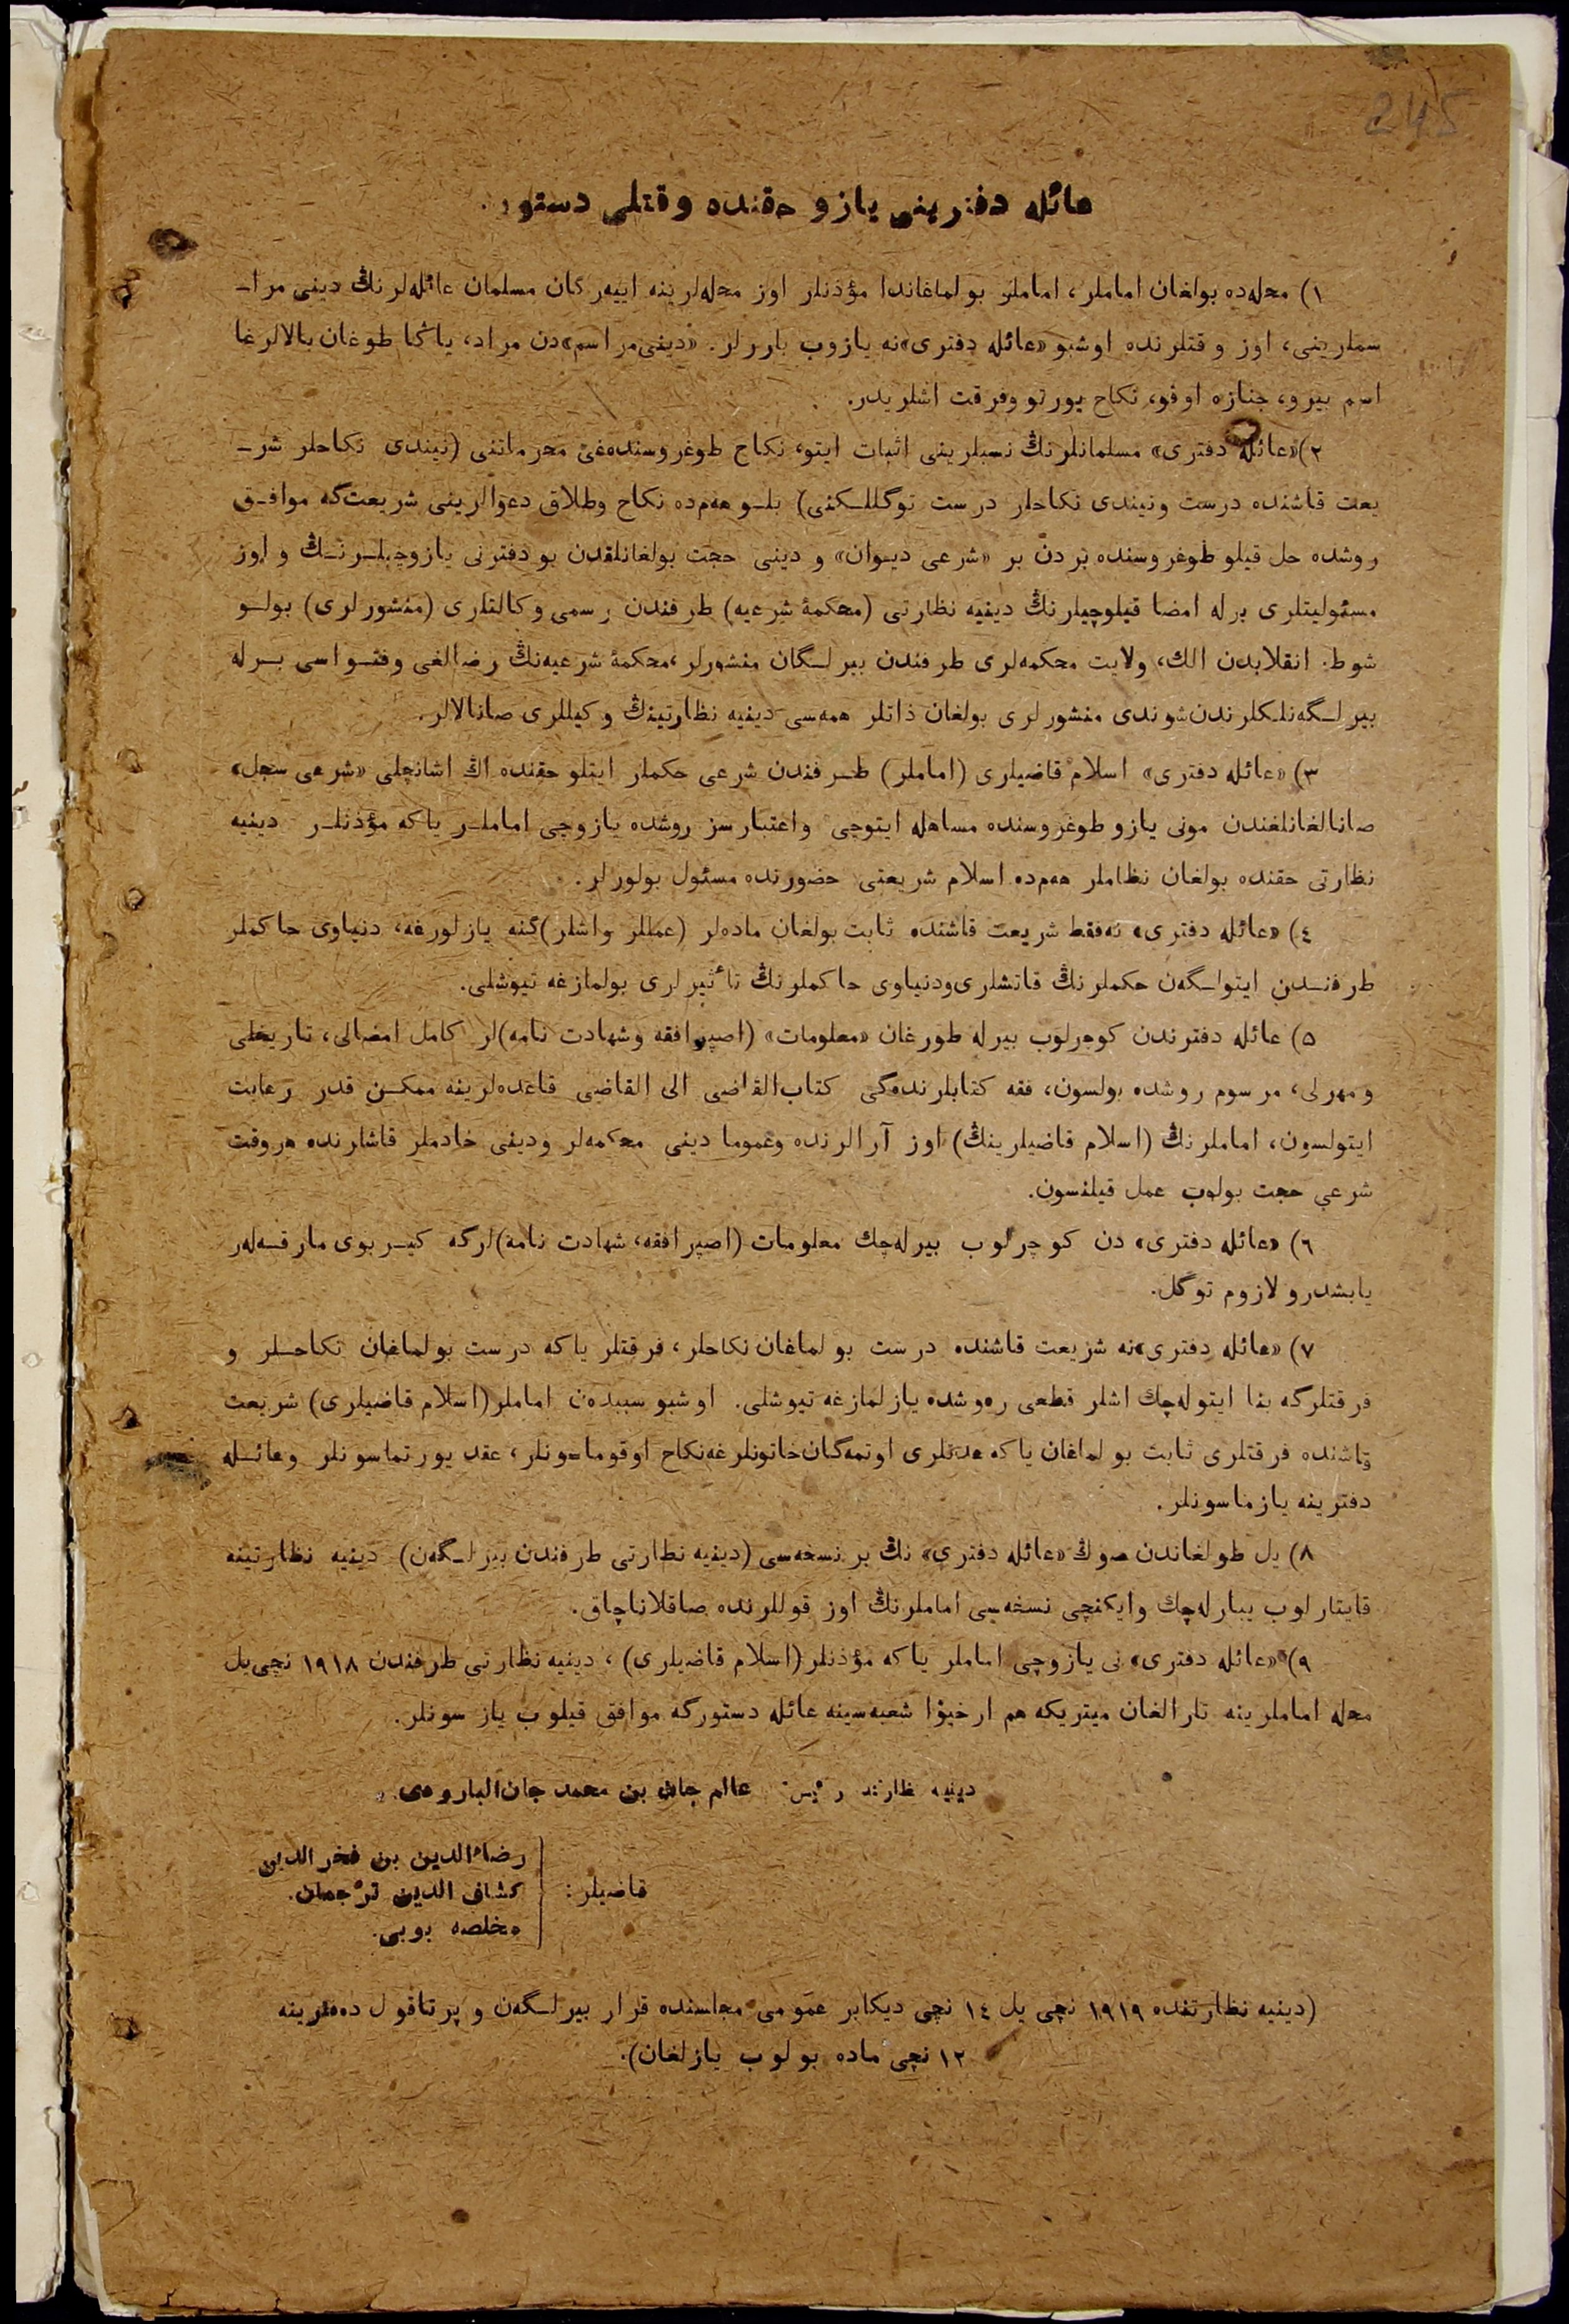 245
عائله دفترینی یازو حقنده وقتلی دستور.
۱) محله‌ده بولغان اماملر، اماملر بولماغاندا مؤذنلر اوز محله‌لرینه اییه‌رگان مسلمان عائله‌لرنڭ دینی مرا-
سملرینی، اوز وقتلرنده اوشبو «عائله دفتری»نه یازوب بارر‌لر. «دینی مراسم»دن مراد، یاڭا طوغان بالالرغا
اسم بیرو، جنازه اوقو، نکاح یورتو وفرقت اشلریدر.
۲) «عائله دفتری» مسلمانلرنڭ نسبلرینی اثبات ایتو، نکاح طوغروسنده‌غی محرماتنی (نیندی نکاحلر شر-
یعت قاشنده درست ونیندی نکاحلر درست توگللـکنی) بلـو هم‌ده نکاح وطلاق دعوالرینی شریعت‌که موافـق
روشده حل قیلو طوغروسنده بردن بر «شرعی دیوان» و دینی حجت بولغانلقدن بو دفترنی یازوچیلـرنـڭ و اوز
مسئولیتلری برله امضا قیلوچیلرنڭ دینیه نظارتی (محکمهٔ شرعیه) طرفندن رسمی وکالتلری (منشورلری) بولـو
شرط. انقلابدن الك، ولایت محکمه‌لری طرفندن بیرلـگان منشورلر، محکمهٔ شرعیه‌نڭ رضالغی وفتـواسی بـرله
بیرلـگه‌نلکلرندن شوندی منشورلری بولغان ذاتلر همه‌سی دینیه نظارتینڭ وکیللری صانالالر.
۳) «عائله دفتری» اسلام قاضیلری (اماملر) طـرفندن شرعی حکملر ایتلو حقنده اڭ اشانچلی «شرعی سجل»
صانالغانلغندن مونی یازو طوغروسنده مساهله ایتوچی واعتبارسز روشده یازوچی اماملـر یاکه مؤذنلـر دینیه
نظارتی حقنده بولغان نظاملر هم‌ده اسلام شریعتی حضورنده مسئول بولورلر.
٤) «عائله دفتری» نه‌فقط شریعت قاشنده ثابت بولغان ماده‌لر (عمللر واشلر)گنه یازلورغه، دنیاوی حاکملر
طرفنـدن ایتولـگه‌ن حکملرنڭ قاتشلری‌ودنیاوی حاکملرنڭ تأثیرلری بولمازغه تیوشلی.
۵) عائله دفترندن کوچرلوب بیرله طورغان «معلومات» (اصپرافقه وشهادت نامه)لر کامل امضالی، تاریخلی
ومهرلی، مرسوم روشده بولسون، فقه کتابلرنده‌گی کتاب‌القاضی الی القاضی قاعده‌لرینه ممکـن قدر رعایت
ایتولسون، اماملرنڭ (اسلام قاضیلرینڭ) اوز آرالرنده وعموما دینی محکمه‌لر ودینی خادملر قاشلرنده هروقت
شرعی حجت بولوب عمل قیلنسون.
۶) «عائله دفتری» دن کوچرلوب بیرله‌چك معلومات (اصپرافقه، شهادت نامه)لرگه کیـربوی مارقـه‌لر
یابشدرو لازوم توگل.
۷) «عائله دفتری»نه شریعت قاشنده درست بولماغان نکاحلر، فرقتلر یاکه درست بولماغان نکاحـلر و
فرقتلرگه بنا ایتوله‌چك اشلر قطعی ره‌وشده یازلمازغه تیوشلی. اوشبو سببده‌ن اماملر (اسلام قاضیلری) شریعت
قاشنده فرقتلری ثابت بولماغان یاکه عدتلری اوتمه‌گان خاتونلرغه نکاح اوقوماسونلر، عقد یورتماسونلر وعائـله
دفترینه یازماسونلر.
۸) یل طولغاندن صوڭ «عائله دفتری» نڭ بر نسخه‌سی (دینیه نظارتی طرفندن بیرلـگه‌ن) دینیه نظارتینه
قایتارلوب یبارله‌چك وایکنچی نسخه‌سی اماملرنڭ اوز قوللرنده صاقلاناچاق.
۹) «عائله دفتری» نی یازوچی اماملر یاکه مؤذنلر (اسلام قاضیلری)، دینیه نظارتی طرفندن ۱۹۱۸ نچی یل
محله اماملرینه تارالغان میتریکه هم ارخیوا شعبه‌سینه عائله دستورگه موافق قیلوب یازسونلر.
دینیه نظارتی رئیسی: عالم جان بن محمد جان البارودی.
قاضیلر:
رضاءالدین بن فخرالدین
کشاف الدین ترجمان.
مخلصه بوبی.
(دینیه نظارتنده ۱۹۱۹ نچی یل ١٤ نچی دیکابر عمومی مجلسنده قرار بیرلـگه‌ن و پرتاقول دفترینه
۱۲ نچی ماده بولوب یازلغان).